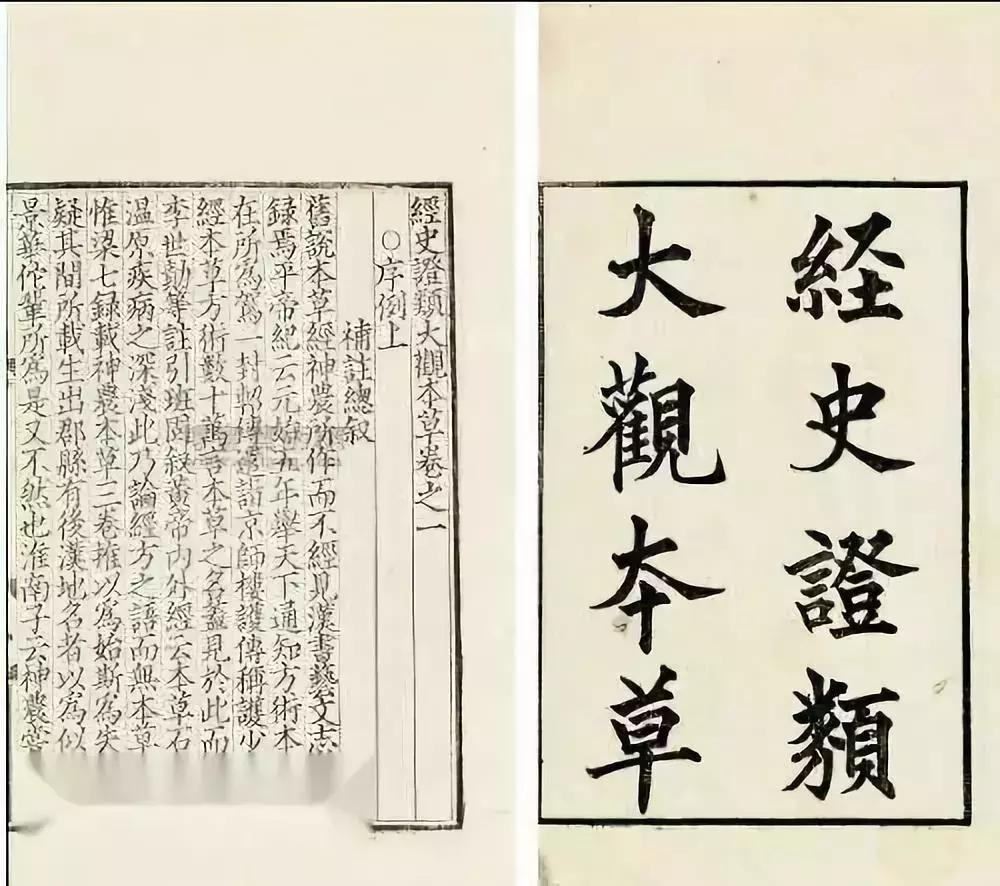 経史證類
大觀本草
經史證類大觀本草卷之一
○序例上
補註總叙
舊說本草經神農所作而不經見漢書藝文志
録焉平帝紀云元始五年舉天下通知方術本
在所為駕一封軺傳遣詣京師樓護傳稱護少
經本草方術數十萬言本草之名蓋見於此而
李世勣等註引班固叙黄帝内外經云本草石
温原疾病之深淺此乃論經方之語而無本草
惟梁七録載神農本草三卷推以為始斯為失
疑其間所載生出郡縣有後漢地名者以為似
景華佗輩所為是又不然也淮南子云神農嘗